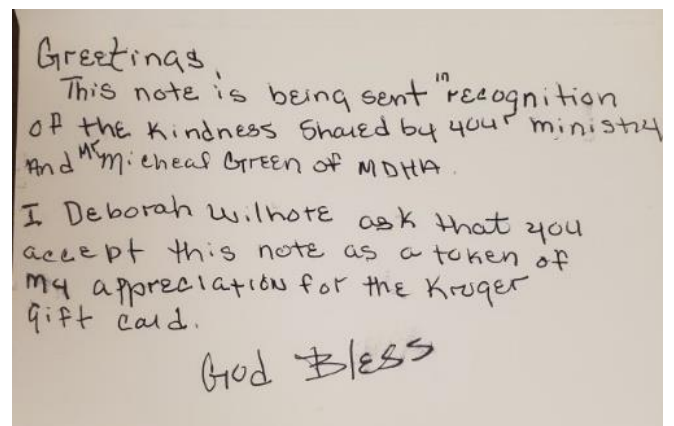 Greetings,
This note is being sent in recognition
of the Kindness Shared by your ministry
And Mr Micheal Green of MDHA.
I Deborah Wilhote ask that you
accept this note as a token of
my appreciation for the Kroger
Gift card.
God Bless